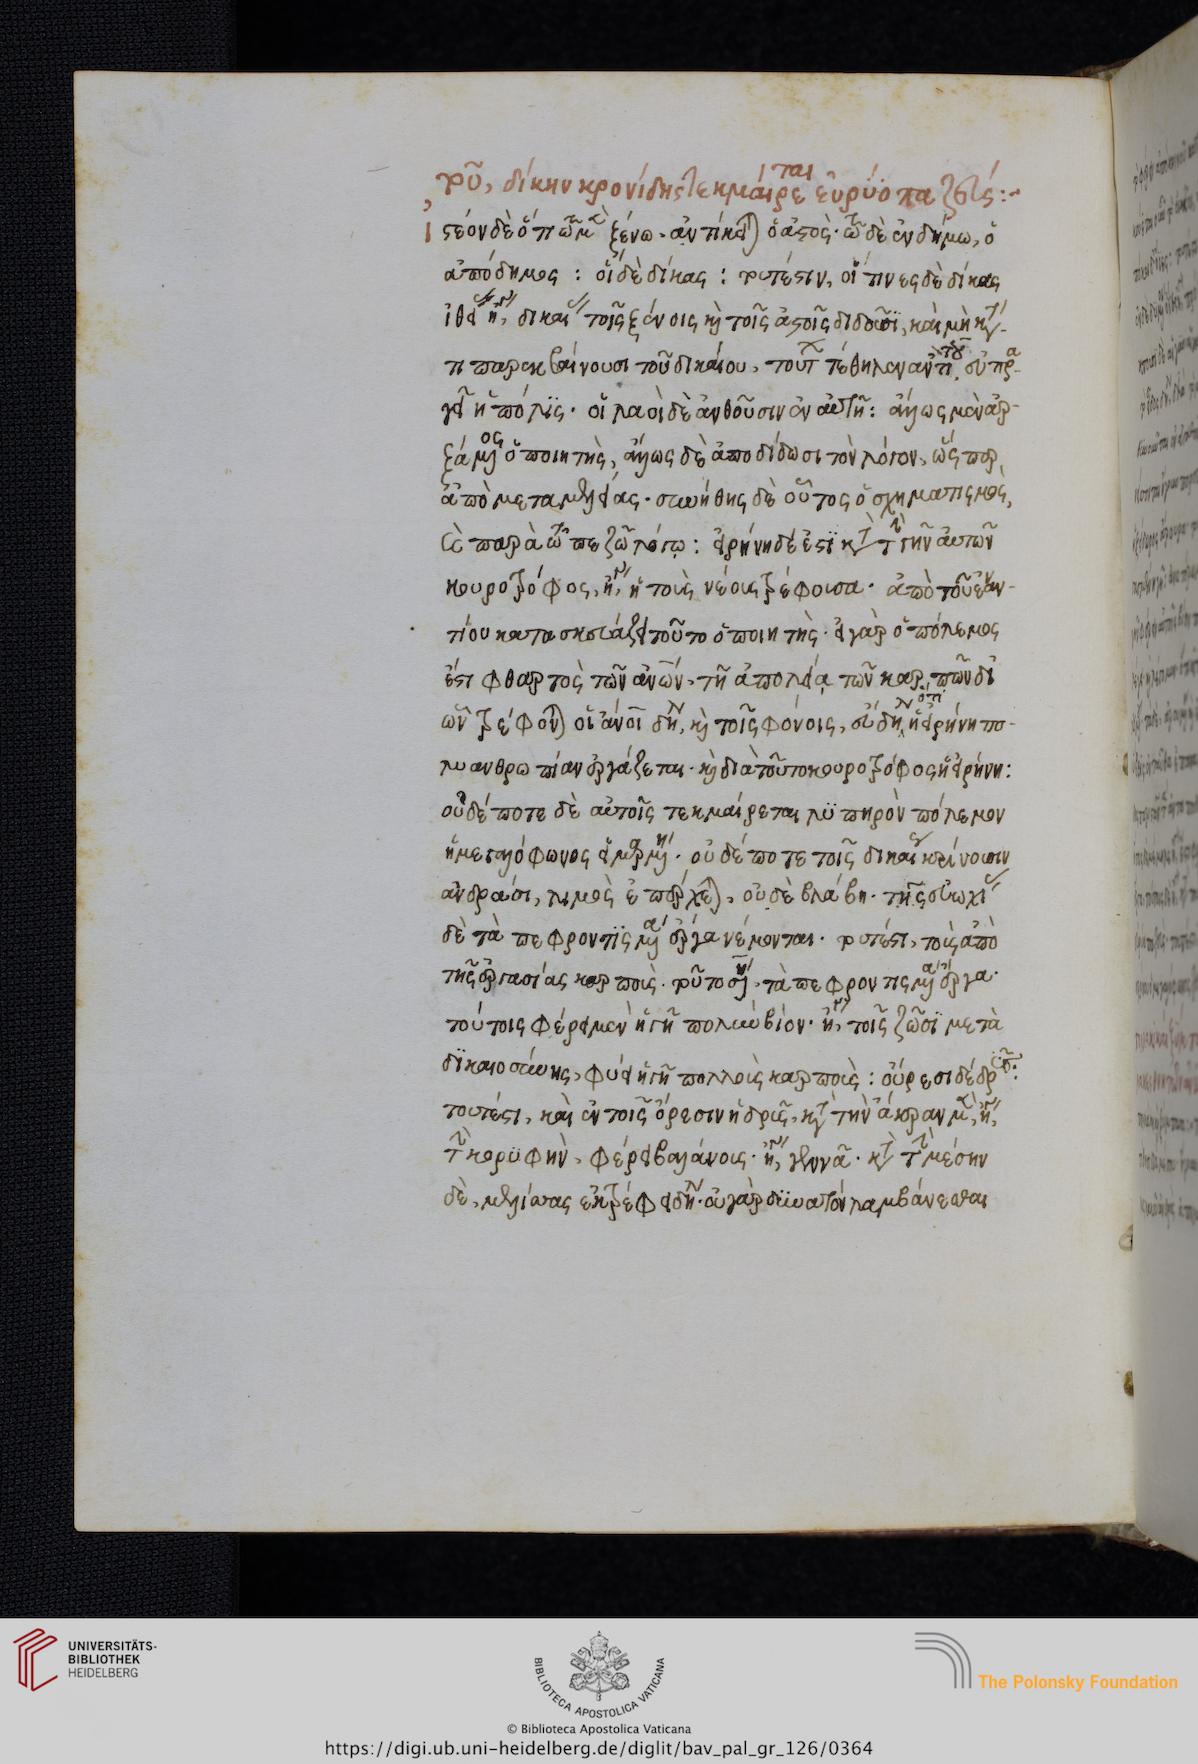 τοῦ, δίκην κρονίδης τεκμαίρεται εὐρύοπα ζεύς:
ἰστέον δὲ ὅτι τῶ μὲν ξένω ἀντίκειται ὁ ἀστός· τῶ δὲ ἐνδήμω, ὁ
ἀπόδημος : οἳ δὲ δίκας : τουτέστιν, οἵ τινες δὲ δίκας
ἰθείας, δικαίας τοῖς ξένοις καὶ τοῖς ἀστοῖς διδοῦσι, καὶ μὴ κατά
τι παρεκβαίνουσι τοῦ δικαίου, τούτοις τέθηλεν ἀντὶ τοῦ εὐπρα
γεῖ ἡ πόλις· οἱ λαοὶ δὲ ἀνθοῦσιν ἐν αὐτῆ: ἄλλως μὲν ἀρ
ξάμενος ὁ ποιητὴς, ἄλλως δὲ ἀποδίδωσι τὸν λόγον, ὥσπερ
ἀπὸ μεταμελείας· συνήθης δὲ οὗτος ὁ σχηματισμὸς,
καὶ παρὰ τῶ πεζῶ λόγω: εἰρήνη δέ ἐστι κατὰ τὴν γῆν αὐτῶν
κουροτρόφος, ἤγουν ἡ τοὺς νέους τρέφουσα· ἀπὸ τοῦ ἐναν
τίου κατασκευάζει τοῦτο ὁ ποιητής· εἰ γὰρ ὁ πόλεμος
ἐστι φθαρτὸς τῶν ἀνθρώπων, τῆ ἀπολεία τῶν καρπῶν δι
ὧν τρέφονται οἱ ἄνθρωποι δηλονότι, καὶ τοῖς φόνοις, εὔδηλον ὅτι ἡ εἰρήνη πο
λυανθρωπίαν ἐργάζεται· καὶ διὰ τοῦτο κουροτρόφος ἡ εἰρήνη:
οὐδέποτε δὲ αὐτοῖς τεκμαίρεται λυπηρὸν πόλεμον
ἡ μεγαλόφωνος εἱμαρμένη· οὐδέποτε τοῖς δικαίως κρίνουσιν
ἀνδράσι, λιμὸς ἐπέρχεται, οὐδὲ βλάβη· τῆς εὐωχίας
δὲ τὰ πεφροντισμένα ἔργα νέμονται· τουτέστι, τοὺς ἀπὸ
τῆς ἐργασίας καρποὺς· τὰ πεφροντισμένα ἔργα·
τούτοις φέρει μὲν ἡ γῆ πολὺν βίον· ἤγουν, τοῖς ζῶσι μετὰ
δικαιοσύνης, φύει ἡ γῆ πολλοὺς καρποὺς : οὔρεσι δέ δρῦς:
τουτέστι, καὶ ἐν τοῖς ὄρεσιν ἡ δρῦς, κατὰ τὴν ἄκραν μὲν, ἤγουν
τὴν κορυφὴν, φέρει βαλάνους· ἤγουν γεννᾶ· κατὰ τὴν μέσην
δὲ, μελίσσας ἐκτρέφει δηλονότι· οὐ γὰρ δυνατὸν λαμβάνεσθαι
UNIVERSITÄTS-
BIBLIOTHEK
HEIDELBERG
BIBLIOTECA APOSTOLICA VATICANA
The Polonsky Foundation
© Biblioteca Apostolica Vaticana
https://digi.ub.uni-heidelberg.de/diglit/bav_pal_gr_126/0364